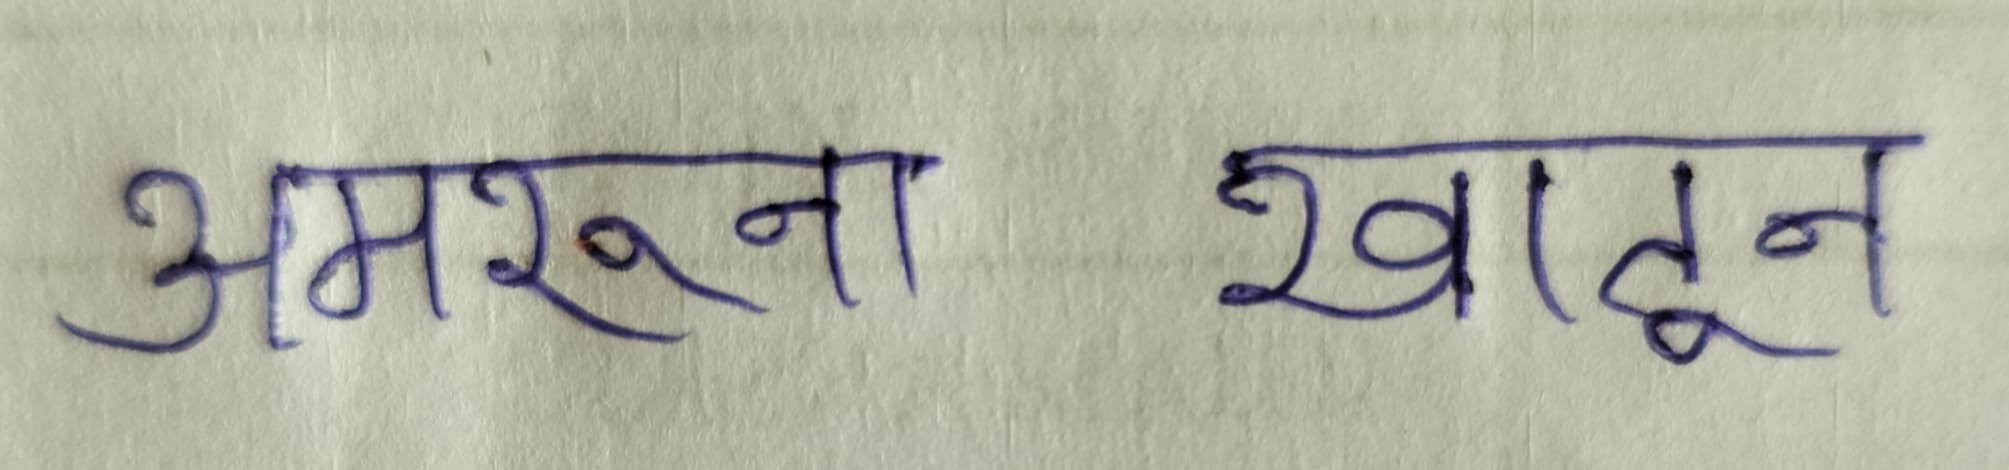 अमरूना खातून